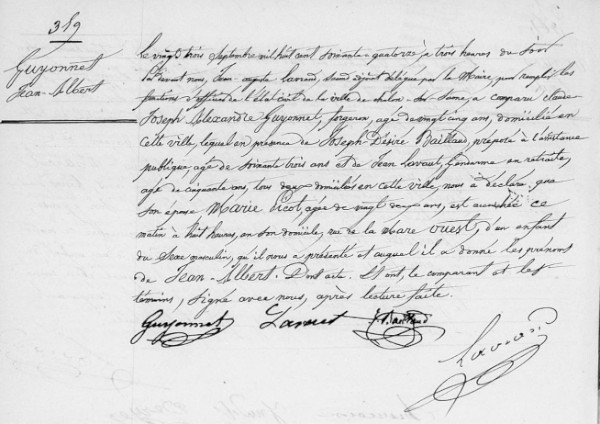 319
Guyonnet
Jean-Albert
Le vingt trois Septembre mil huit cent soixante-quatorze, à trois heures du Soir
devant nous, Jean second adjoint délégué par le Maire, pour remplir les
fonctions d'officier de l'état civil de la ville de Chalon-Sur-Saône, a comparu Claude
Joseph Alexandre Guyonnet, forgeron, âgé de vingt cinq ans, domicilié en
cette ville, lequel en présence de Joseph-Désiré Baillard, préposé à l'assistance
publique, âgé de soixante trois ans et de Jean Lavaut, Gendarme en retraite,
âgé de cinquante ans, tous deux domiciliés en cette ville, nous a déclaré que
Son épouse Marie Picot, âgée de vingt deux ans, est accouchée ce
matin à huit heures, en son domicile, rue de la Mare Ouest, d'un enfant
du Sexe masculin, qu'il nous a présenté et auquel il a donné les prénoms
de Jean-Albert. Dont acte. Et ont, le comparant et les
témoins, signé avec nous, après lecture faite.
Guyonnet Lavaut Baillard